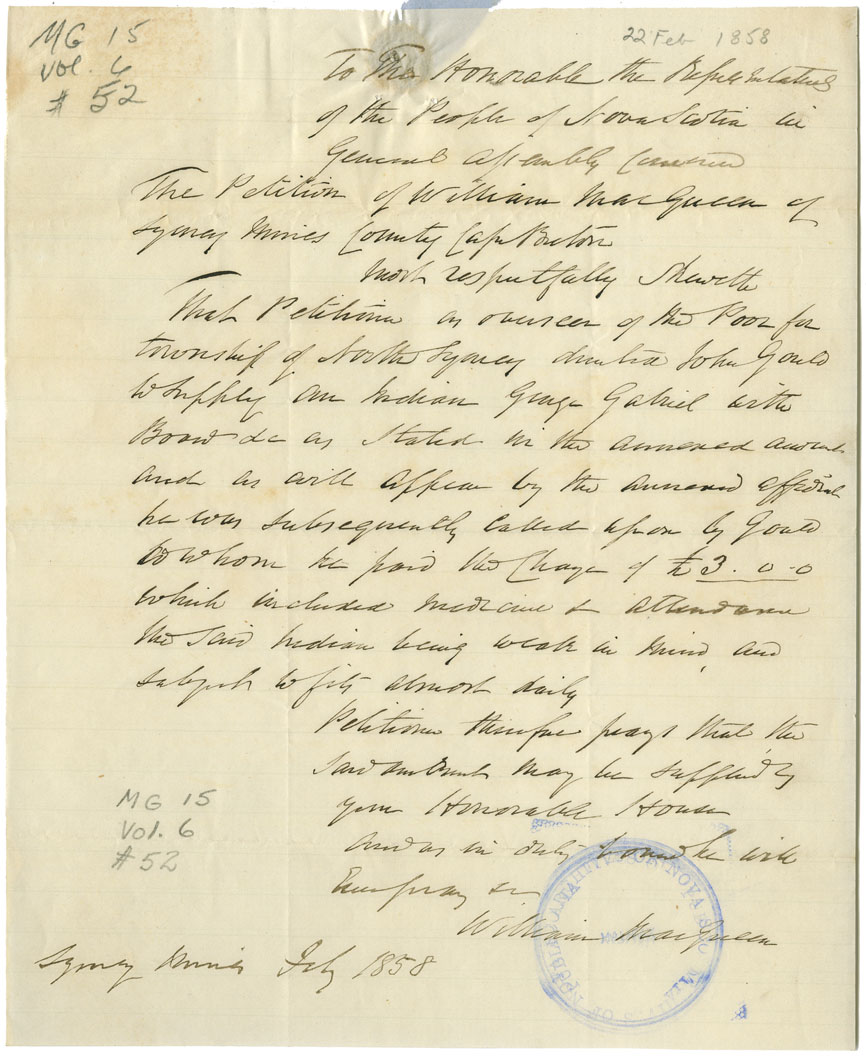 MG 15
Vol. 6
# 52
22 Feb 1858
To The Honorable the Representatives
of the People of Nova Scotia in
General Assembly Convened
The Petition of William MacQueen of
Sydney Mines County Cape Breton
Most respectfully Sheweth
That Petitioner as overseer of the Poor for
township of North Sydney directed John Gould
to supply an Indian George Gabriel with
Board &c as Stated in the annexed account
and as will appear by the annexed affidavit
he was subsequently called upon by Gould
to whom he paid the Charge of £3. 0 - 0
which included medicine & attendance
the Said Indian being weak in mind, and
subject to fits almost daily
Petitioner therefore prays that the
Said amount may be supplied by
your Honorable House
and as in duty bound he will
Ever pray &c
William MacQueen
Sydney Mines Feby 1858
MG 15
Vol. 6
#52
PUBLIC ARCHIVES OF NOVA SCOTIA